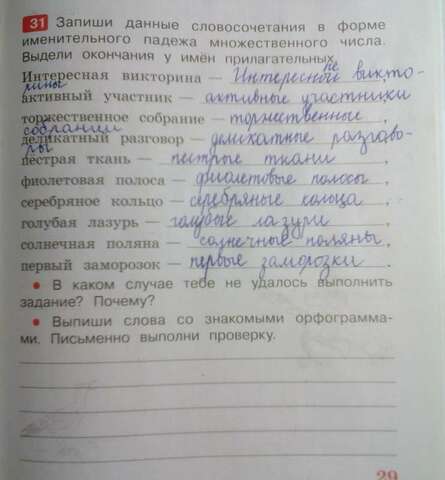 31 Запиши данные словосочетания в форме
именительного падежа множественного числа.
Выдели окончания у имён прилагательных.
Интересная викторина — Интересные викто-
рины
активный участник — активные участники
торжественное собрание — торжественные
собрании
деликатный разговор — деликатные разгаво-
ры
пёстрая ткань — пестрые ткани ,
фиолетовая полоса — фиолетовые полосы ,
серебряное кольцо — серебряные колоца ,
голубая лазурь — голубые лазури ,
солнечная поляна — солнечные поляны ,
первый заморозок — первые заморозки .
• В каком случае тебе не удалось выполнить
задание? Почему?
• Выпиши слова со знакомыми орфограмма-
ми. Письменно выполни проверку.
29